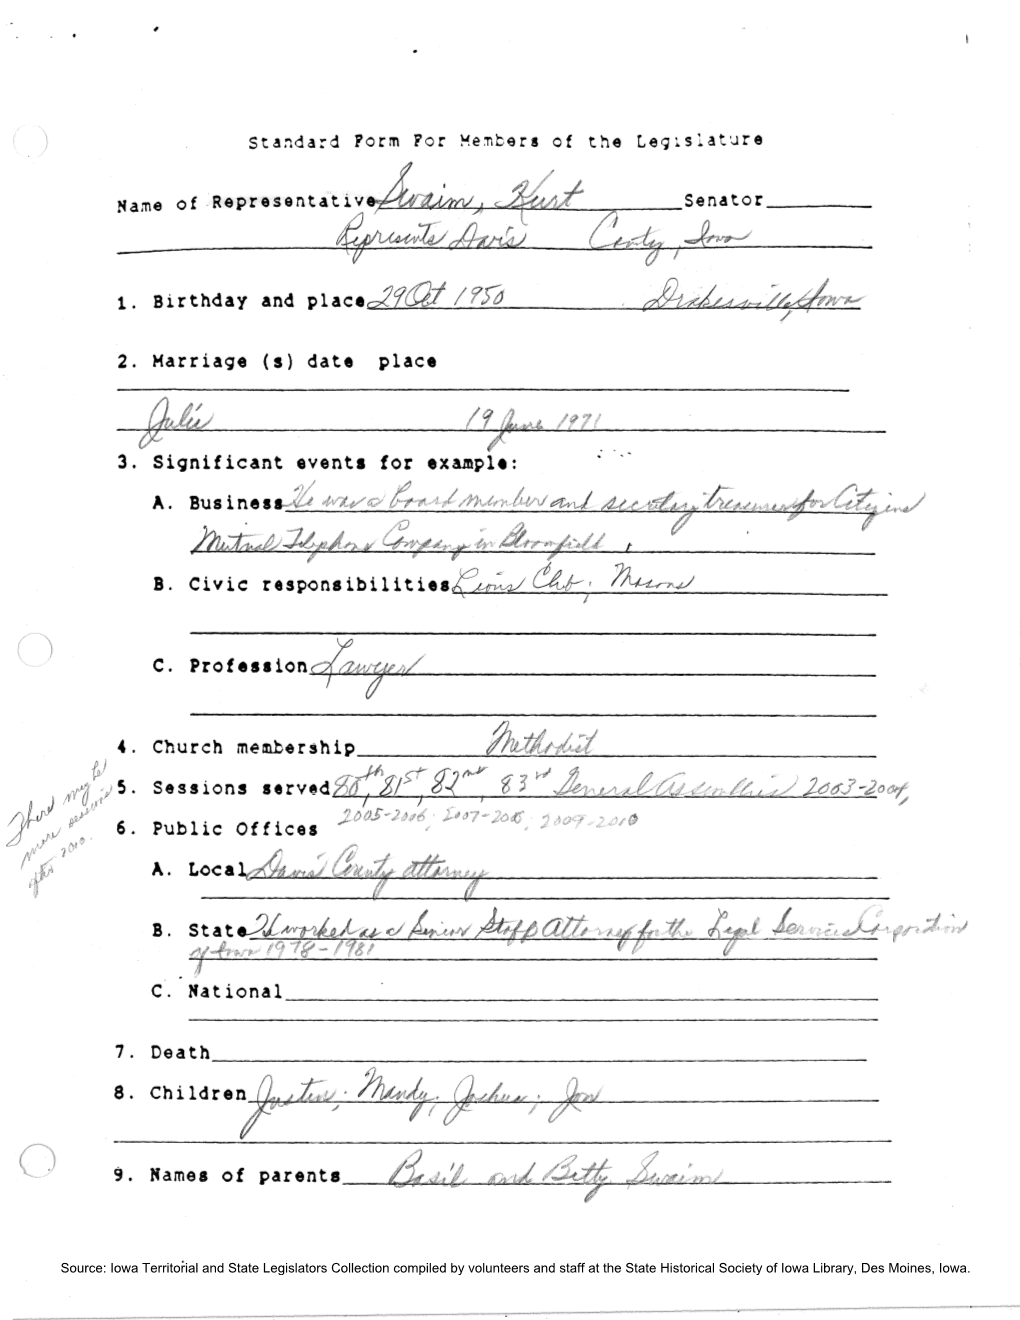 Standard Form For Members of the Legislature
Name of Representative Swaim, Kurt Senator
Represents Davis County, Iowa
1. Birthday and place 29 Oct 1950 Drakesville, Iowa
2. Marriage (s) date place
Julie 19 June 1971
3. Significant events for example:
A. Business He was a board member and secretary treasurer for Citizens
Mutual Telephone Company in Bloomfield
B. Civic responsibilities Lions Club; Masons
C. Profession Lawyer
4. Church membership Methodist
5. Sessions served 80th, 81st, 82nd, 83rd General Assemblies 2003-2004,
2005-2006; 2007-2008; 2009-2010
There may be
more sessions
after 2010.
6. Public Offices
A. Local Davis County attorney
B. State He worked as a Senior Staff Attorney for the Legal Services Corporation
of Iowa 1978-1981
C. National
7. Death
8. Children Justin; Mandy; Joshua; Jon
9. Names of parents Basil and Betty Swaim
Source: Iowa Territorial and State Legislators Collection compiled by volunteers and staff at the State Historical Society of Iowa Library, Des Moines, Iowa.